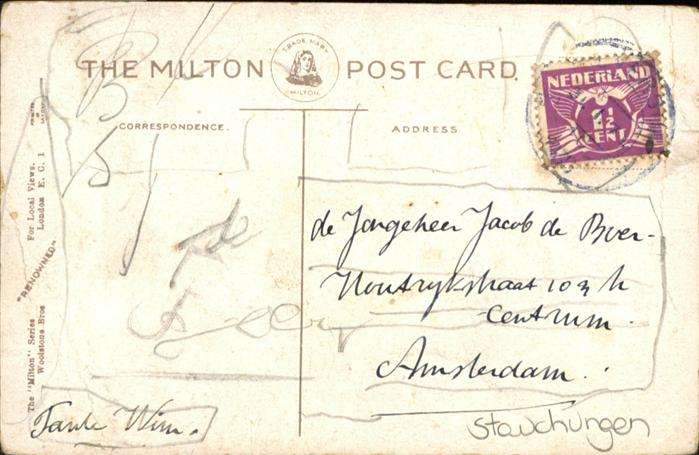 THE MILTON POST CARD.
TRADE MARK
MILTON
CORRESPONDENCE.
ADDRESS
NEDERLAND
1½
CENT
de Jongeheer Jacob de Boer-
Houtrykstraat 103 h
Centrum.
Amsterdam.
Tante Wim.
Stauchungen
The "Milton" Series
Woolstone Bros
"RENOWNED"
For Local Views.
London E. C. 1